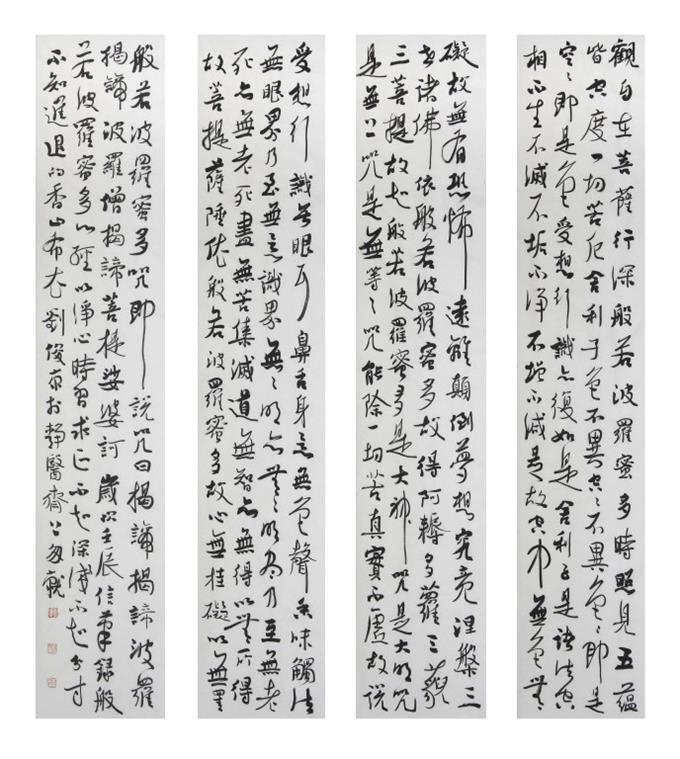 觀自在菩薩行深般若波羅蜜多時照見五蘊
皆空度一切苦厄舍利子色不異空〻不異色〻即是
空〻即是色受想行識亦復如是舍利子是諸法空
相不生不滅不垢不淨不增不減是故空中無色無
受想行識無眼耳鼻舌身意無色聲香味觸法
無眼界乃至無意識界無〻明亦無〻明盡乃至無老
死亦無老死盡無苦集滅道無智亦無得以無所得
故菩提薩埵依般若波羅蜜多故心無挂礙以無罣
礙故無有恐怖遠離顛倒夢想究竟涅槃三
世諸佛依般若波羅蜜多故得阿耨多羅三藐
三菩提故知般若波羅蜜多是大神咒是大明咒
是無上咒是無等〻咒能除一切苦真實不虛故說
般若波羅蜜多咒即說咒曰揭諦揭諦波羅
揭諦波羅僧揭諦菩提娑婆訶歲次壬辰信筆錄般
若波羅蜜多心經以淨心時習求正不知深淺不知分寸
不知進退的香山布衣劉俊京於靜醫齋